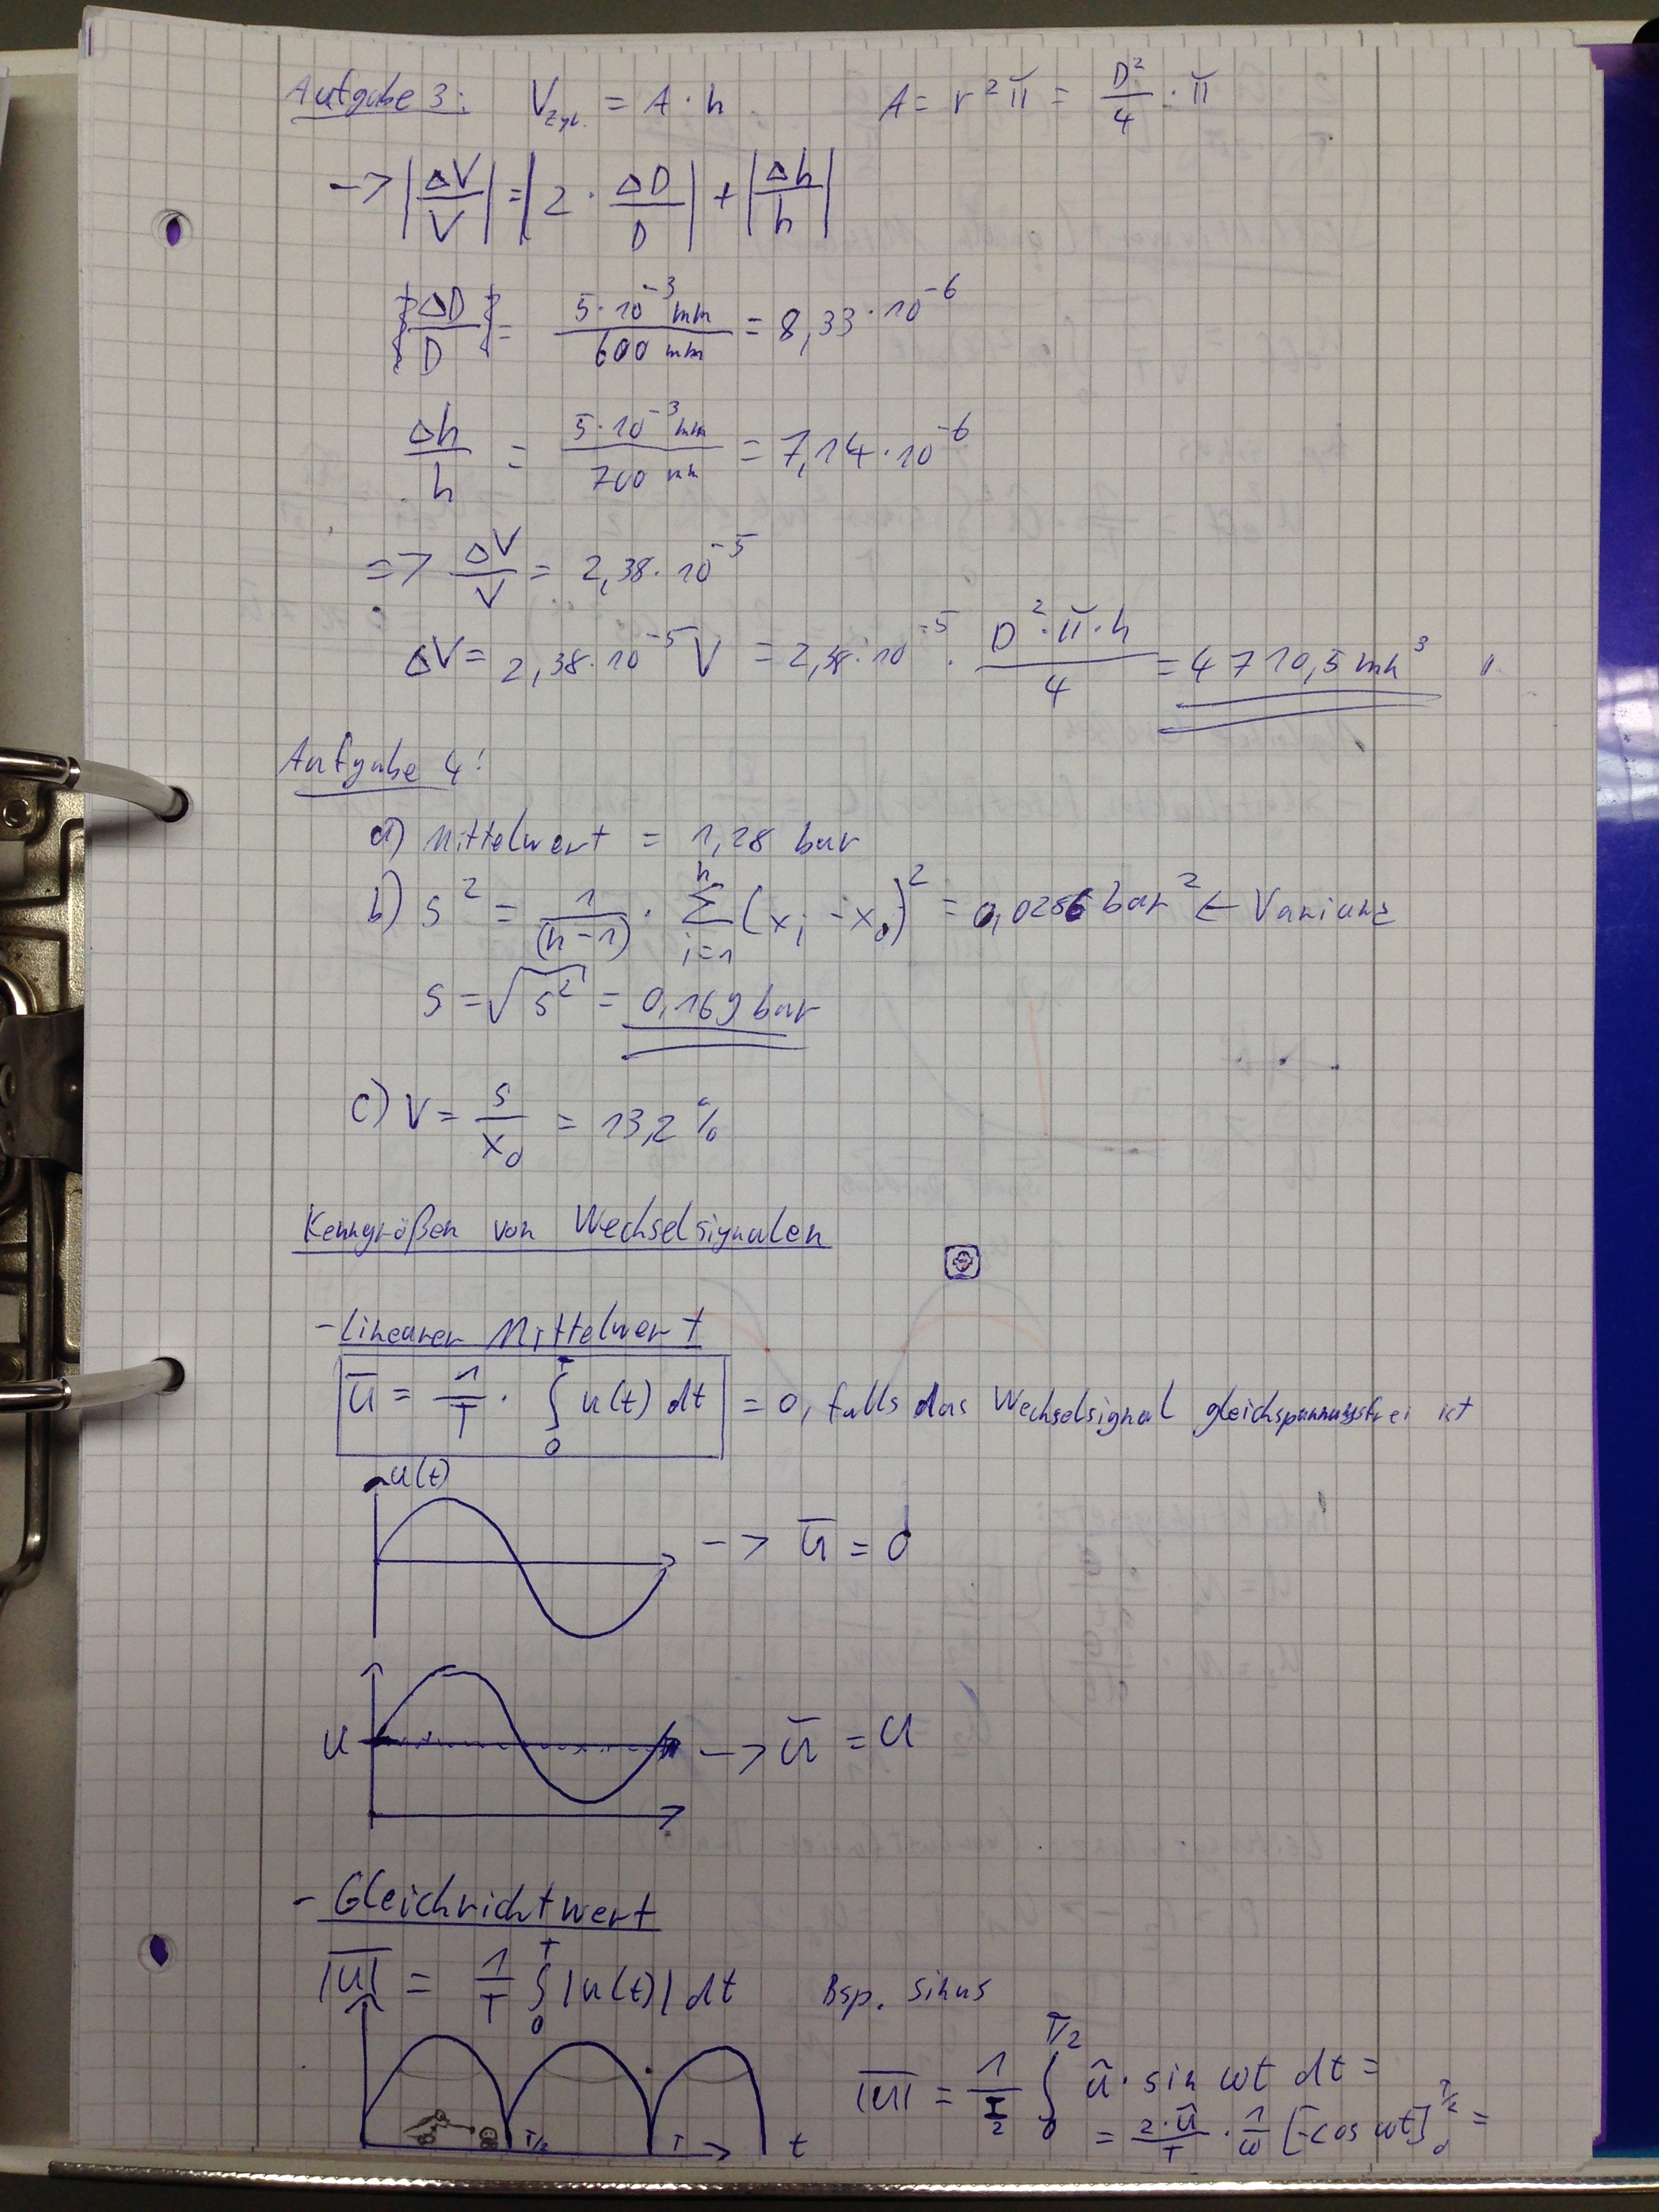 Aufgabe 3: V_Zyl. = A · h A = r² π = D²/4 · π
-> |ΔV/V| = |2 · ΔD/D| + |Δh/h|
ΔD/D = 5·10⁻³ mm / 600 mm = 8,33·10⁻⁶
Δh/h = 5·10⁻³ mm / 700 mm = 7,14·10⁻⁶
=> ΔV/V = 2,38·10⁻⁵
ΔV = 2,38·10⁻⁵ V = 2,38·10⁻⁵ · D²·π·h / 4 = 4710,5 mm³
Aufgabe 4:
a) Mittelwert = 1,28 bar
b) s² = 1/(n-1) · Σ_{i=1}^{n} (x_i - x_0)² = 0,0286 bar² <- Varianz
s = √s² = 0,169 bar
c) V = s/x_0 = 13,2 %
Kenngrößen von Wechselsignalen
- Linearer Mittelwert
ū = 1/T · ∫₀ᵀ u(t) dt = 0, falls das Wechselsignal gleichspannungsfrei ist
u(t)
-> ū = 0
U -> ū = U
- Gleichrichtwert
|u|‾ = 1/T ∫₀ᵀ |u(t)| dt Bsp. sinus
|u|‾ = 1/(T/2) ∫₀^{T/2} û · sin ωt dt =
= 2·û/T · 1/ω [-cos ωt]₀^{T/2} =
T/2 T t